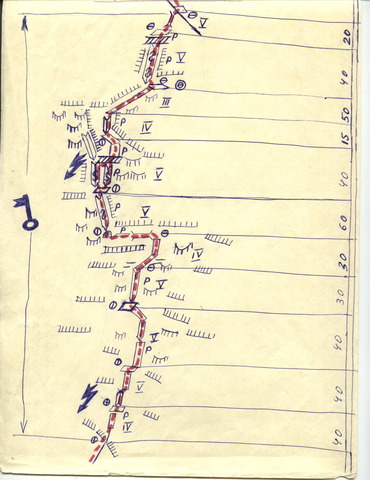 V
P 20
V
P
40
III
50
P IV
15
P
P V 40
V
60
P
IV
30
P V
30
V
40
P
V
P
40
P
IV
40